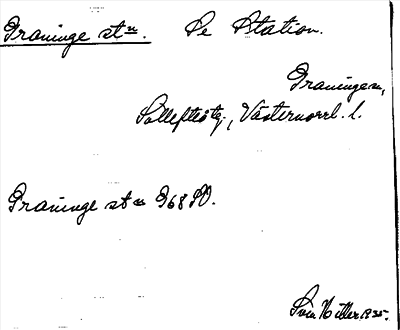 Graninge stn. Se Station.
Graningeån,
Sollefteå tg., Västernorrl. l.
Graninge stn 968 SO.